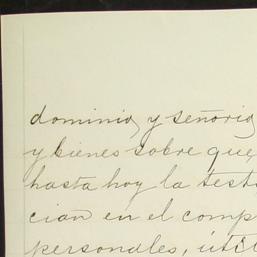 dominio, y señorio,
y bienes sobre que,
hasta hoy la test
cian en el comp
personales, úti